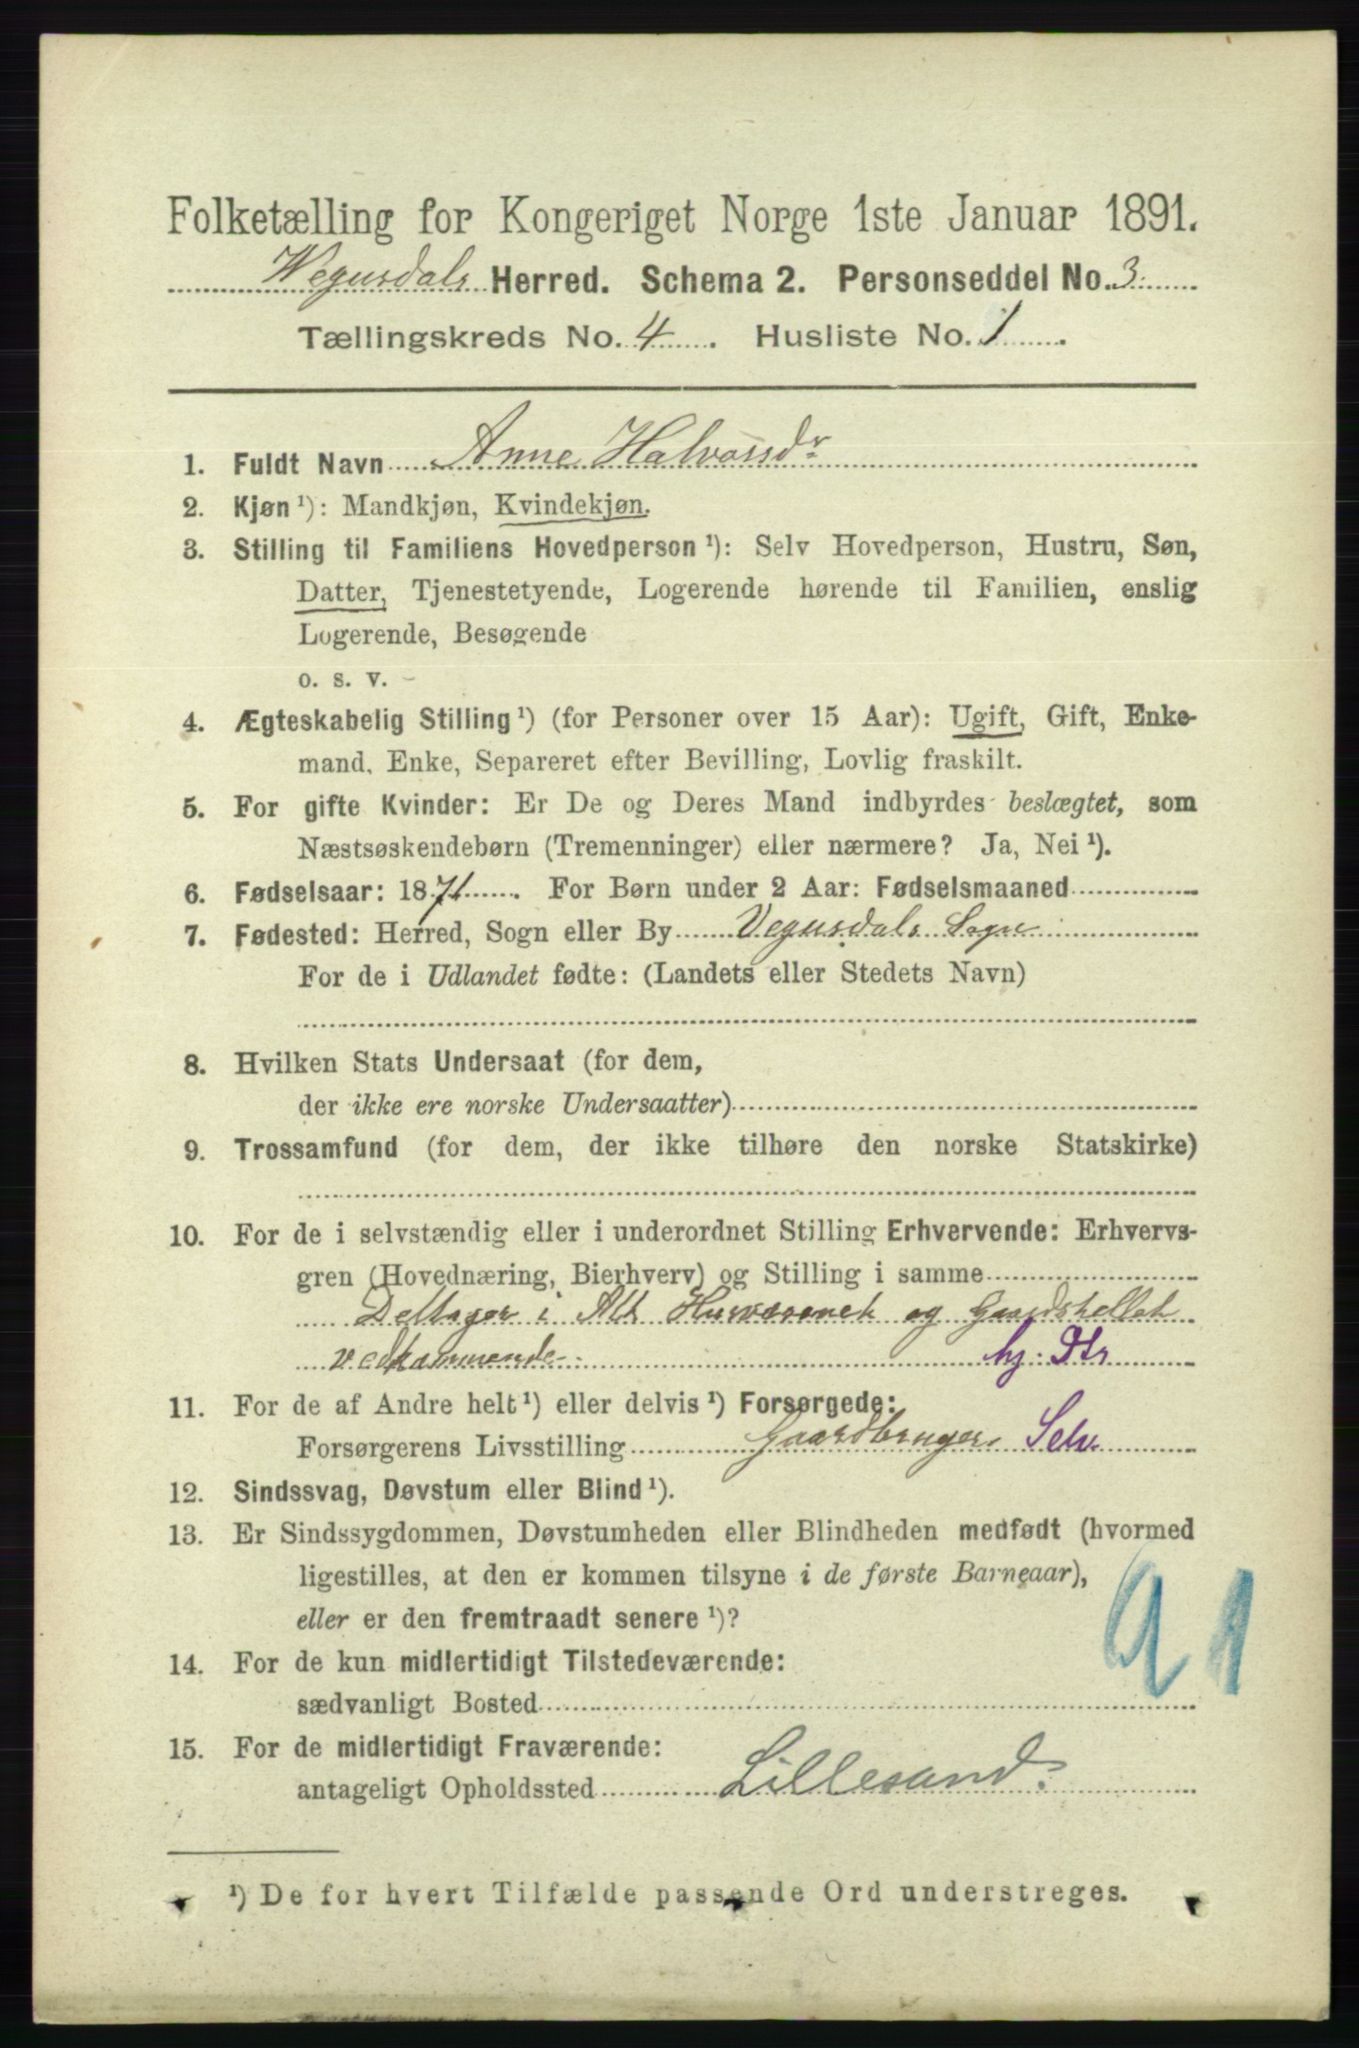 Folketælling for Kongeriget Norge 1ste Januar 1891.
Wegusdals Herred. Schema 2. Personseddel No. 3.
Tællingskreds No. 4. Husliste No. 1.
1. Fuldt Navn Anne Halvorsdr
2. Kjøn ¹): Mandkjøn, Kvindekjøn.
3. Stilling til Familiens Hovedperson ¹): Selv Hovedperson, Hustru, Søn,
Datter, Tjenestetyende, Logerende hørende til Familien, enslig
Logerende, Besøgende
o. s. v.
4. Ægteskabelig Stilling ¹) (for Personer over 15 Aar): Ugift, Gift, Enke-
mand, Enke, Separeret efter Bevilling, Lovlig fraskilt.
5. For gifte Kvinder: Er De og Deres Mand indbyrdes beslægtet, som
Næstsøskendebørn (Tremenninger) eller nærmere? Ja, Nei ¹).
6. Fødselsaar: 1871. For Børn under 2 Aar: Fødselsmaaned
7. Fødested: Herred, Sogn eller By Vegusdals Sogn
For de i Udlandet fødte: (Landets eller Stedets Navn)
8. Hvilken Stats Undersaat (for dem,
der ikke ere norske Undersaatter)
9. Trossamfund (for dem, der ikke tilhøre den norske Statskirke)
10. For de i selvstændig eller i underordnet Stilling Erhvervende: Erhvervs-
gren (Hovednæring, Bierhverv) og Stilling i samme
Deltager i Alt Husvæsenet og Gaardstellet
vedkommende. hj. Str
11. For de af Andre helt ¹) eller delvis ¹) Forsørgede:
Forsørgerens Livsstilling Gaardbruger. Selv
12. Sindssvag, Døvstum eller Blind ¹).
13. Er Sindssygdommen, Døvstumheden eller Blindheden medfødt (hvormed
ligestilles, at den er kommen tilsyne i de første Barneaar),
eller er den fremtraadt senere ¹)?
91
14. For de kun midlertidigt Tilstedeværende:
sædvanligt Bosted
15. For de midlertidigt Fraværende:
antageligt Opholdssted Lillesand.
¹) De for hvert Tilfælde passende Ord understreges.